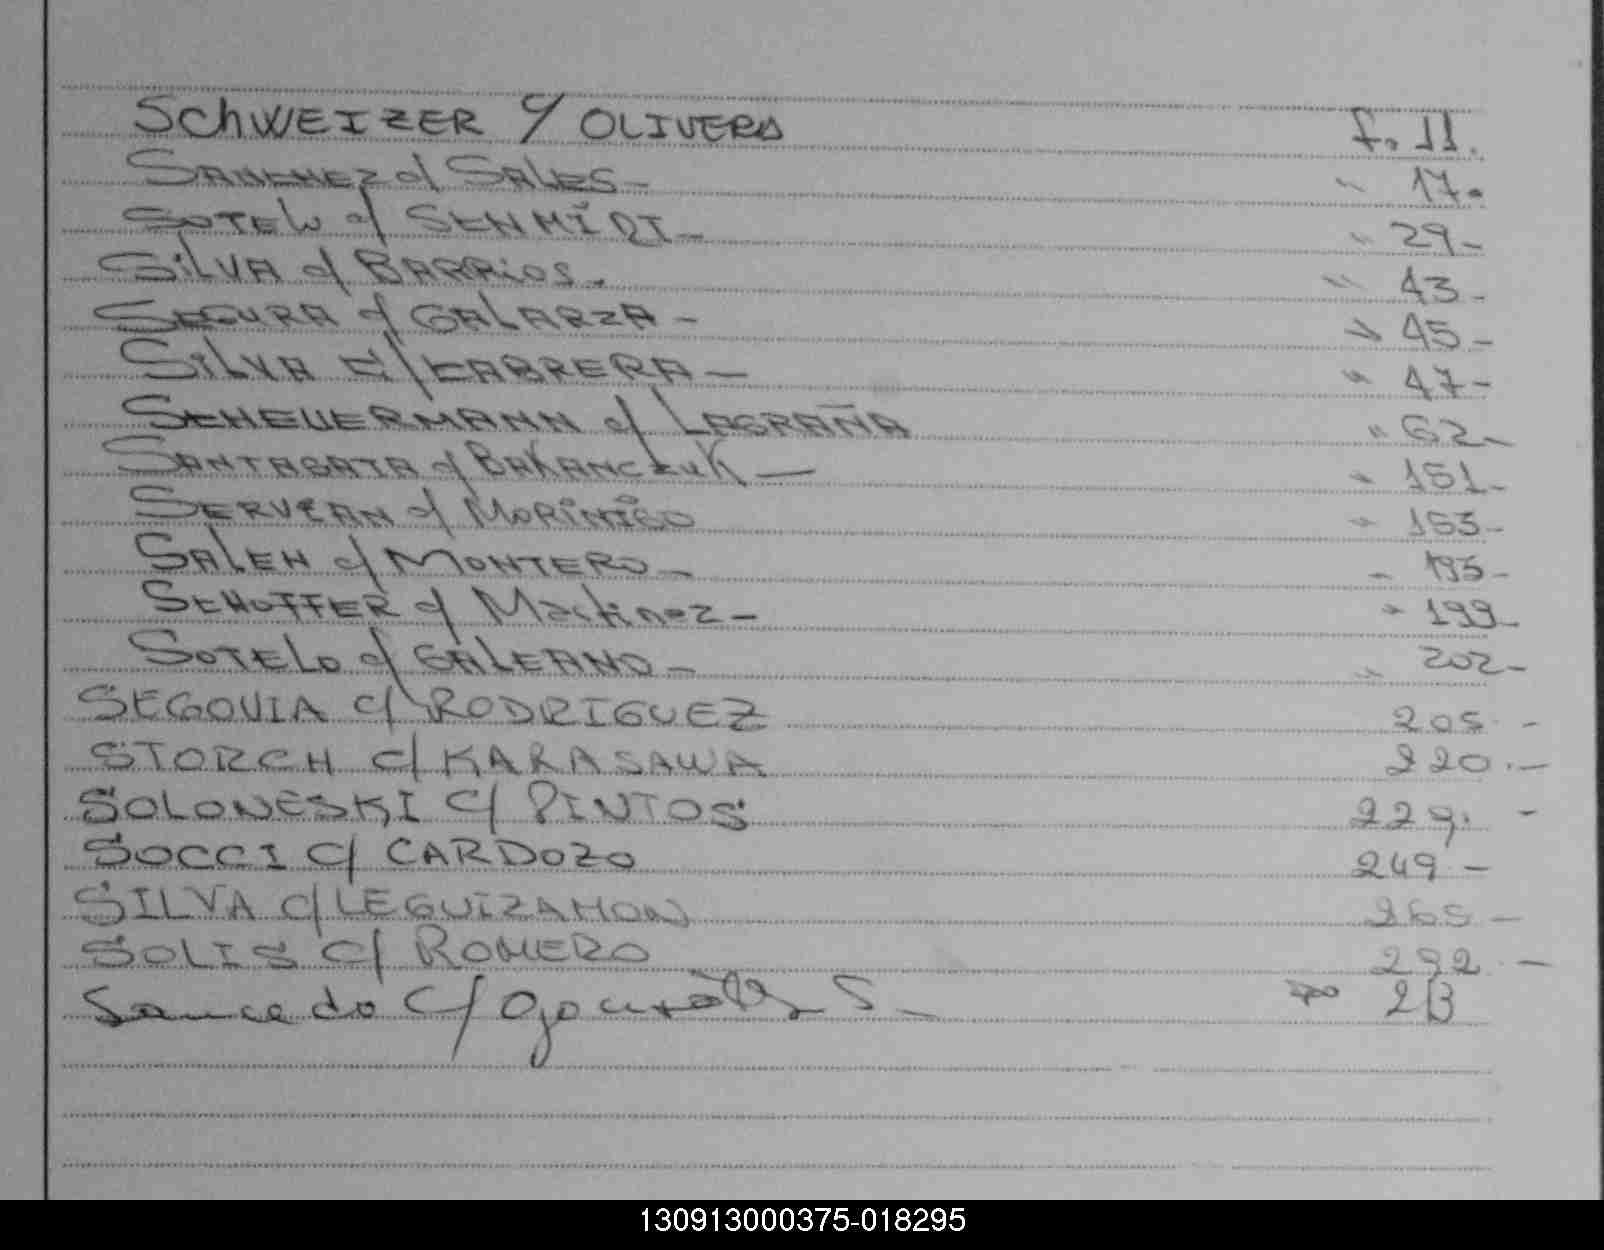 SchWEIZER c/ OLIVERA f. 11.
SANCHEZ c/ SALES - " 17.
SOTELO c/ SCHMIDT - " 29 -
SILVA c/ BARRIOS. " 43 -
SEGURA c/ GALARZA - " 45 -
SILVA c/ CABRERA - " 47 -
SCHEUERMANN c/ LAGRAÑA " 62 -
SANTAGATA c/ BAKANCZUK - " 151 -
SERVIAN c/ MORINIGO " 153 -
SALEH c/ MONTERO - " 193 -
SCHOFFER c/ Martinez - " 199 -
SOTELO c/ GALEANO - " 202 -
SEGOVIA c/ RODRIGUEZ 205 -
STORCH c/ KARASAWA 220. -
SOLONESKI c/ PINTOS 229. -
SOCCI c/ CARDOZO 249 -
SILVA c/ LEGUIZAMON 265 -
SOLIS c/ ROMERO 292 -
Saucedo c/ S -
130913000375-018295